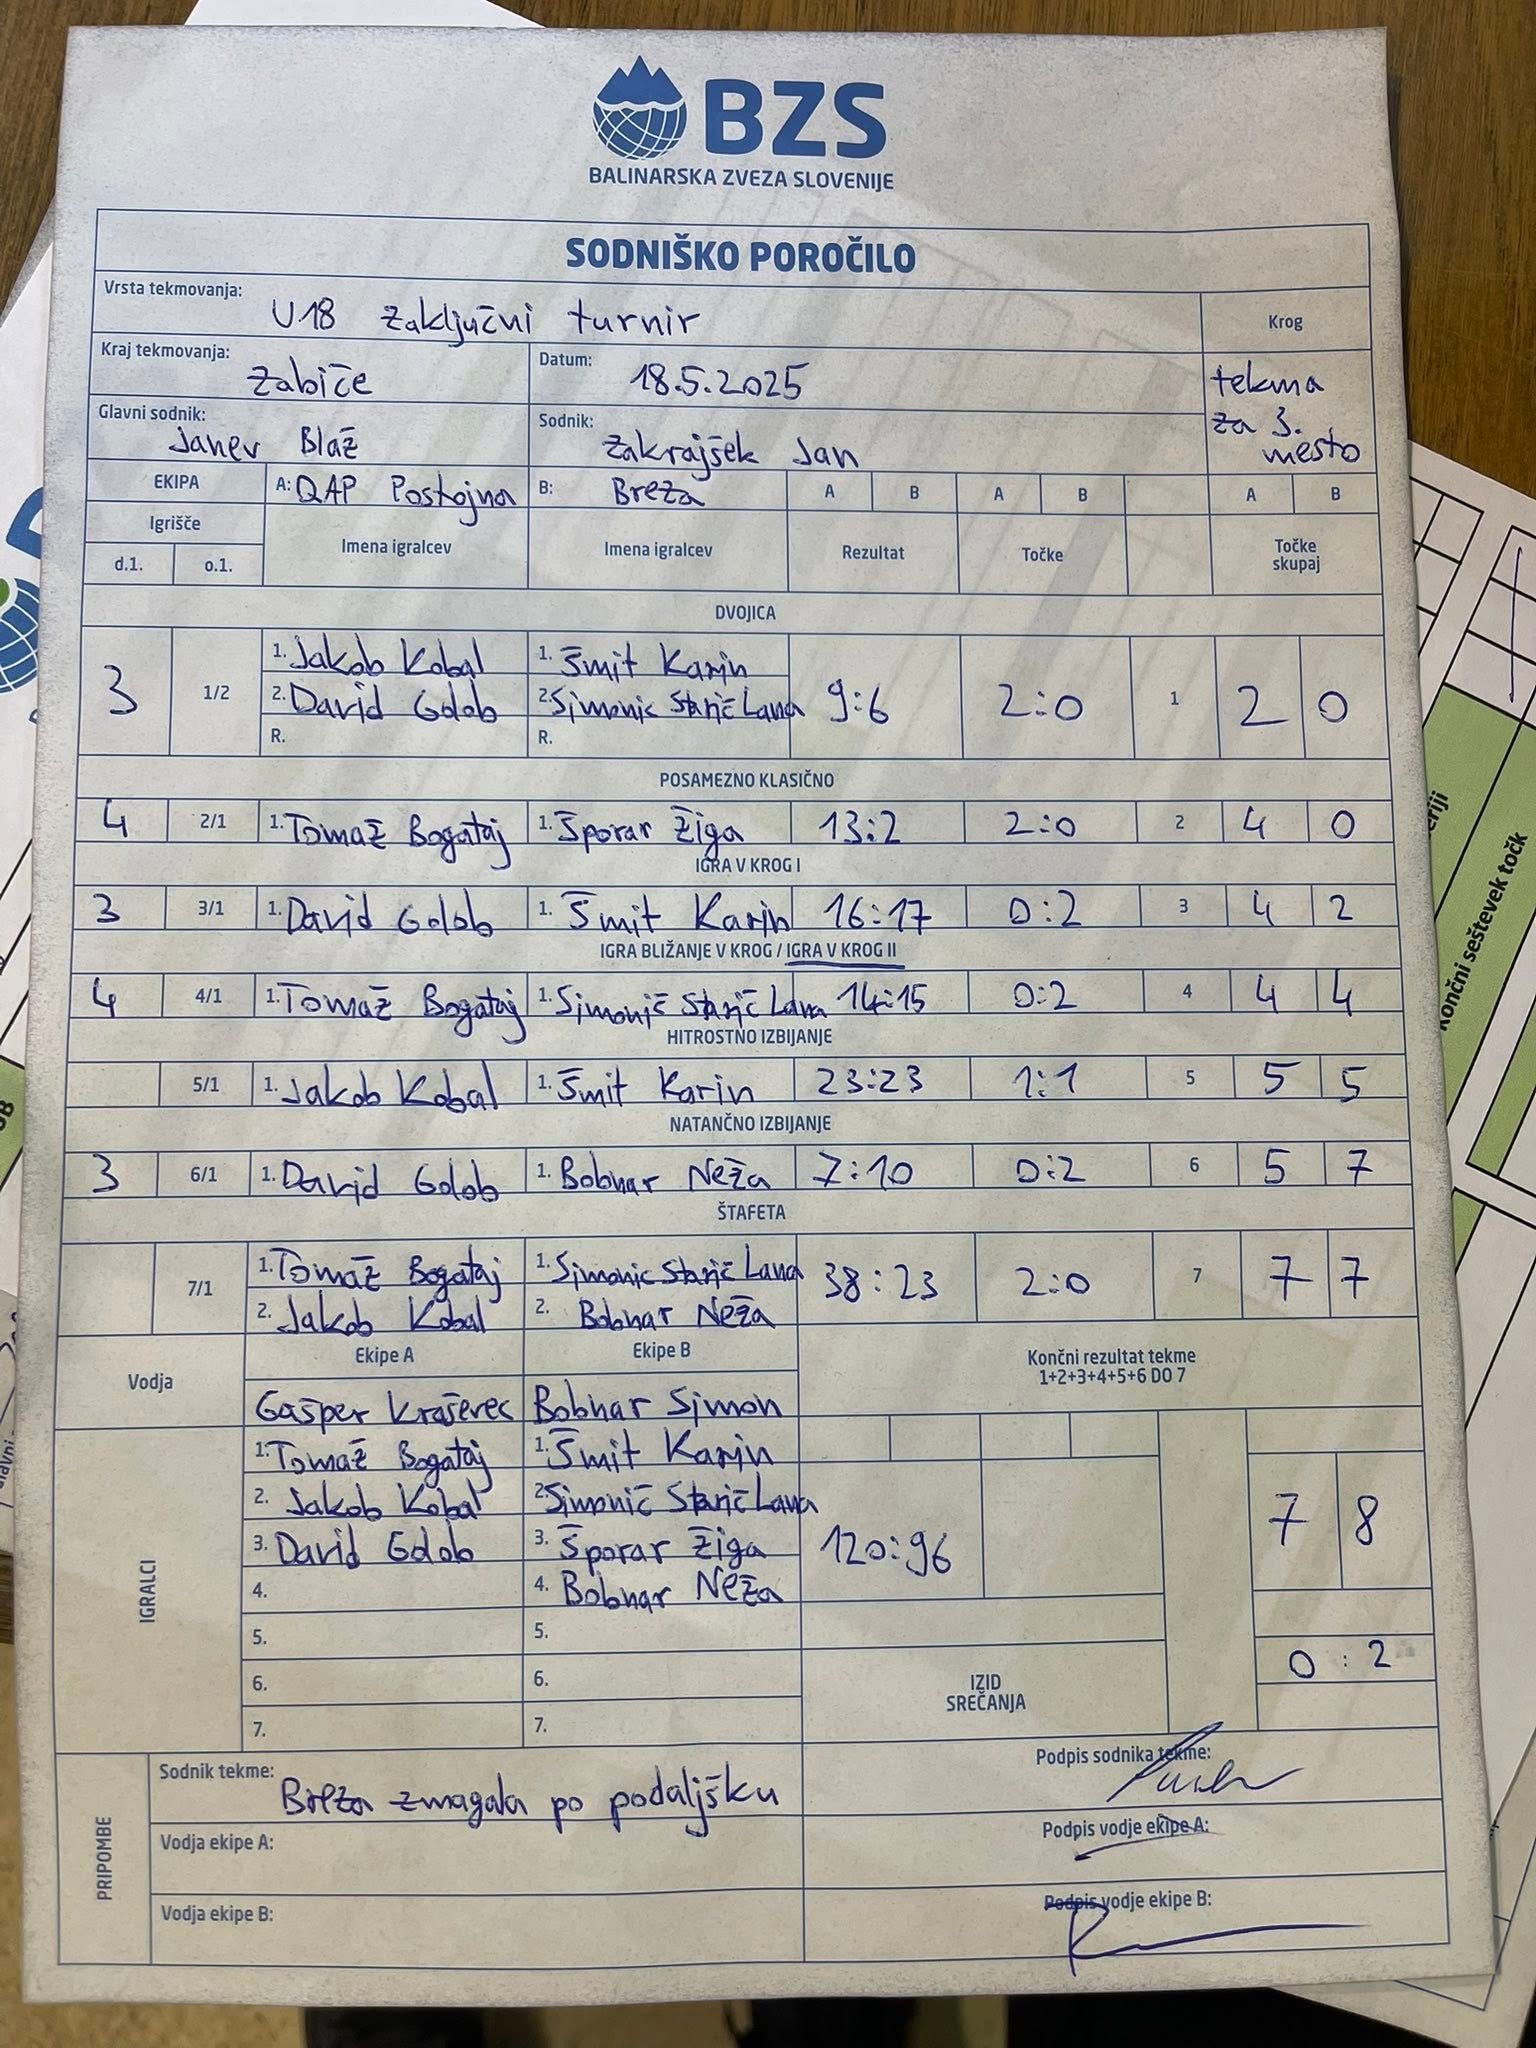 BZS
BALINARSKA ZVEZA SLOVENIJE
SODNIŠKO POROČILO
Vrsta tekmovanja: U18 zaključni turnir
Krog
Kraj tekmovanja: Zabiče Datum: 18.5.2025
tekma
za 3.
mesto
Glavni sodnik: Janev Blaž Sodnik: Zakrajšek Jan
EKIPA A: QAP Postojna B: Breza A B A B A B
Igrišče
d.1. o.1. Imena igralcev Imena igralcev Rezultat Točke Točke
skupaj
DVOJICA
3 1/2 1. Jakob Kobal 1. Šmit Karin 9:6 2:0 1 2 0
2. David Golob 2. Simonic Starič Lana
R. R.
POSAMEZNO KLASIČNO
4 2/1 1. Tomaž Bogataj 1. Šporar Žiga 13:2 2:0 2 4 0
IGRA V KROG I
3 3/1 1. David Golob 1. Šmit Karin 16:17 0:2 3 4 2
IGRA BLIŽANJE V KROG / IGRA V KROG II
4 4/1 1. Tomaž Bogataj 1. Simonič Starič Lana 14:15 0:2 4 4 4
HITROSTNO IZBIJANJE
5/1 1. Jakob Kobal 1. Šmit Karin 23:23 1:1 5 5 5
NATANČNO IZBIJANJE
3 6/1 1. David Golob 1. Bobnar Neža 7:10 0:2 6 5 7
ŠTAFETA
7/1 1. Tomaž Bogataj 1. Simonic Starič Lana 38:23 2:0 7 7 7
2. Jakob Kobal 2. Bobnar Neža
Vodja Ekipe A Ekipe B
Gašper Kraševec Bobnar Simon
Končni rezultat tekme
1+2+3+4+5+6 DO 7
IGRALCI
1. Tomaž Bogataj 1. Šmit Karin
2. Jakob Kobal 2. Simonič Starič Lana
3. David Golob 3. Šporar Žiga
4. 4. Bobnar Neža
5. 5.
6. 6.
7. 7.
120:96 7 8
0 : 2
IZID
SREČANJA
PRIPOMBE
Sodnik tekme: Breza zmagala po podaljšku
Podpis sodnika tekme:
Vodja ekipe A:
Podpis vodje ekipe A:
Vodja ekipe B:
Podpis vodje ekipe B:
Končni seštevek točk